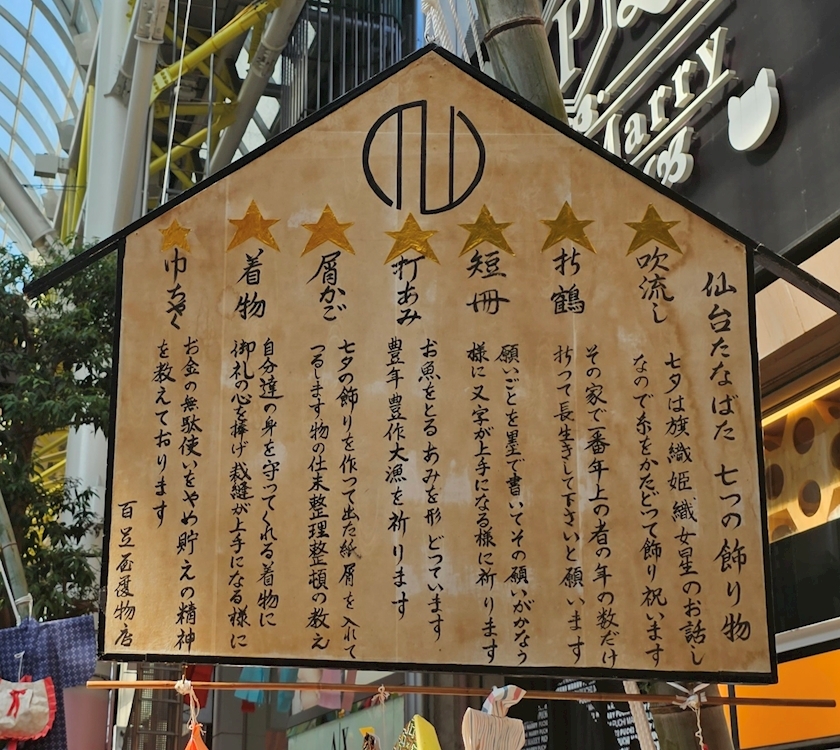 仙台たなばた 七つの飾り物
吹流し
七夕は旗織姫織女星のお話し
なので糸をかたどって飾り祝います
折鶴
その家で一番年上の者の年の数だけ
折って長生きして下さいと願います
短冊
願いごとを墨で書いてその願いがかなう
様に又字が上手になる様に祈ります
打あみ
お魚をとるあみを形どっています
豊年豊作大漁を祈ります
屑かご
七夕の飾りを作って出た紙屑を入れて
つるします物の仕末整理整頓の教え
着物
自分達の身を守ってくれる着物に
御礼の心を捧げ裁縫が上手になる様に
巾ちゃく
お金の無駄使いをやめ貯えの精神
を教えております
百足屋履物店
Marry